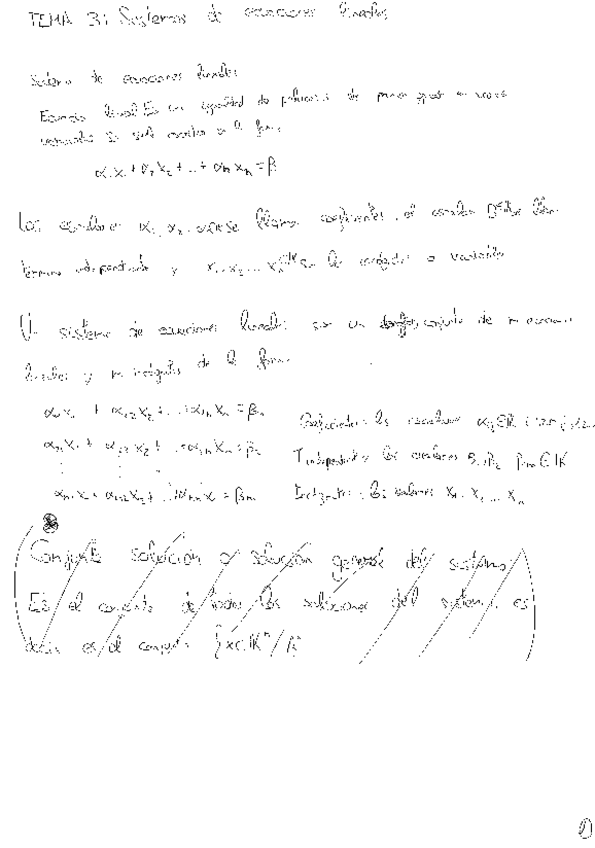 TEMA 3: Sistemas de ecuaciones lineales
Sistema de ecuaciones lineales
Ecuación lineal: Es una igualdad de polinomios de primer grado en varias
variables. Se suele escribir de la forma
α₁x₁ + α₂x₂ + ... + αₙxₙ = β
Los escalares α₁, α₂ se llaman coeficientes, el escalar
término independiente y x₁, x₂ ... xₙ son las incógnitas o variables
Un sistema de ecuaciones lineales son un conjunto de m ecuaciones
lineales y n incógnitas de la forma
+ α₁₂x₂ + ... + α₁ₙxₙ = β₁
+ α₂₂x₂ + ... + α₂ₙxₙ = β₂
+ ... = βₘ
Coeficientes: los escalares
T independientes: los escalares β₁, β₂ βₘ ∈ K
Incógnitas: los valores x₁, x₂ ... xₙ
Conjunto solución o solución general del sistema:
Es el conjunto de todas las soluciones del sistema, es
decir es el conjunto {x ∈ Kⁿ /
1